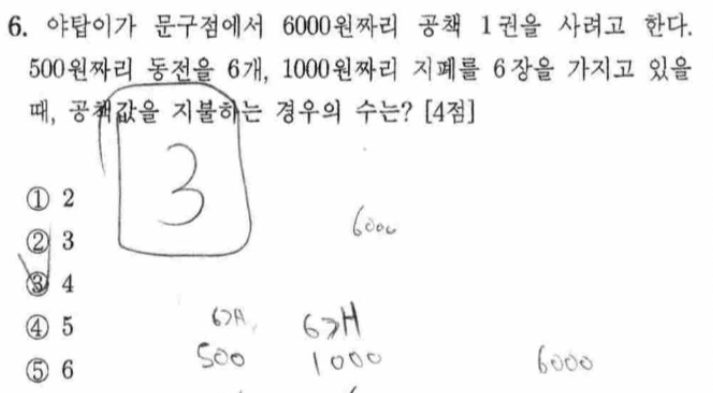 6. 야탑이가 문구점에서 6000원짜리 공책 1권을 사려고 한다.
500원짜리 동전을 6개, 1000원짜리 지폐를 6장을 가지고 있을
때, 공책값을 지불하는 경우의 수는? [4점]
3
① 2
6000
② 3
③ 4
④ 5
6개 6개
500 1000 6000
⑤ 6